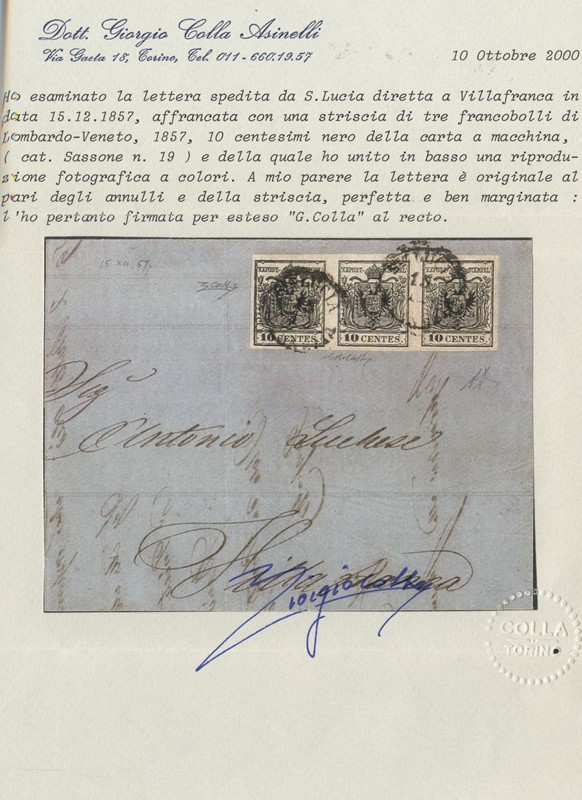 Dott. Giorgio Colla Asinelli
Via Gaeta 18, Torino, Tel. 011-660.19.57
10 Ottobre 2000
Ho esaminato la lettera spedita da S.Lucia diretta a Villafranca in
data 15.12.1857, affrancata con una striscia di tre francobolli di
Lombardo-Veneto, 1857, 10 centesimi nero della carta a macchina,
( cat. Sassone n. 19 ) e della quale ho unito in basso una riprodu-
zione fotografica a colori. A mio parere la lettera è originale al
pari degli annulli e della striscia, perfetta e ben marginata :
l'ho pertanto firmata per esteso "G.Colla" al recto.
15 XII 57.
KREUZER
10 CENTES. 10 CENTES. 10 CENTES.
Sig
Antonio Luchese
Giorgio Colla
COLLA
TORINO